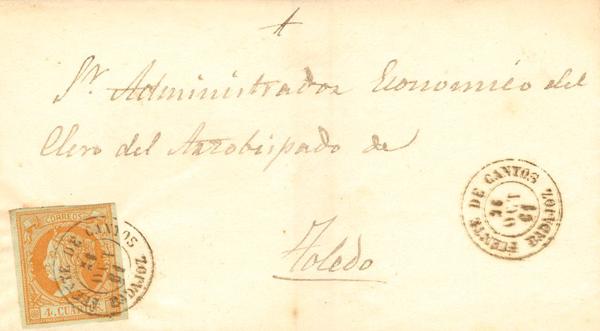 Sr. Administrador Economico del
Clero del Arzobispado de
Toledo
CORREOS
4. CUARTOS
FUENTE DE CANTOS
FUENTE DE CANTOS